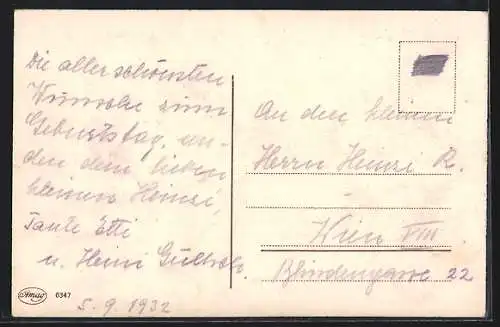 Die allerschönsten
Wünsche zum
Geburtstag, sen-
den dem lieben
kleinen Heinzi,
Tante Etti
u. Heini
5. 9. 1932
Amag 6347
An den kleinen
Herrn Heinzi R.
Wien VIII
Blindengasse 22